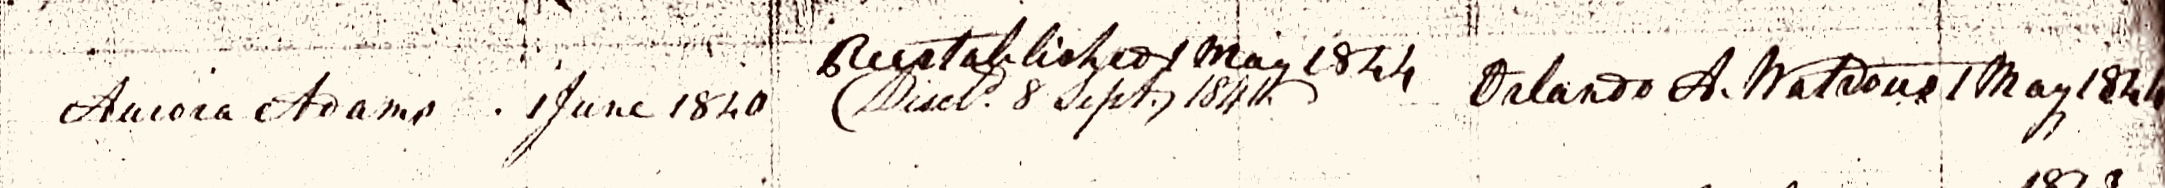 Reestablished 1 May 1844
Aurora Adams . 1 June 1840 (Discd. 8 Sept., 1841) Orlando A. Watrous 1 May 1844